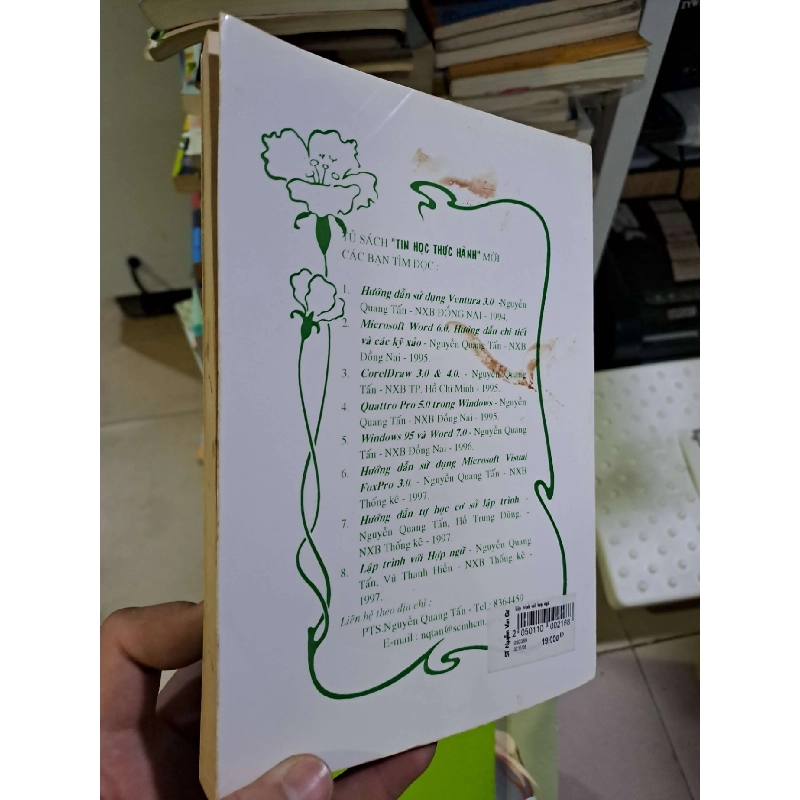 TỦ SÁCH "TIN HỌC THỰC HÀNH" MỜI
CÁC BẠN TÌM ĐỌC :
1. Hướng dẫn sử dụng Ventura 3.0 -Nguyễn
Quang Tấn - NXB ĐỒNG NAI - 1994.
2. Microsoft Word 6.0. Hướng dẫn chi tiết
và các kỹ xảo - Nguyễn Quang Tấn - NXB
Đồng Nai - 1995.
3. CorelDraw 3.0 & 4.0. - Nguyễn Quang
Tấn - NXB TP. Hồ Chí Minh - 1995.
4. Quattro Pro 5.0 trong Windows - Nguyễn
Quang Tấn - NXB Đồng Nai - 1995.
5. Windows 95 và Word 7.0 - Nguyễn Quang
Tấn - NXB Đồng Nai - 1996.
6. Hướng dẫn sử dụng Microsoft Visual
FoxPro 3.0. - Nguyễn Quang Tấn - NXB
Thống kê - 1997.
7. Hướng dẫn tự học cơ sở lập trình. -
Nguyễn Quang Tấn, Hồ Trung Dũng. -
NXB Thống kê - 1997.
8. Lập trình với Hợp ngữ - Nguyễn Quang
Tấn, Vũ Thanh Hiền - NXB Thống kê -
1997.
Liên hệ theo địa chỉ :
PTS.Nguyễn Quang Tấn - Tel.: 8364459
E-mail : nqtan@scmhcm.
2 050110 002168
19,000